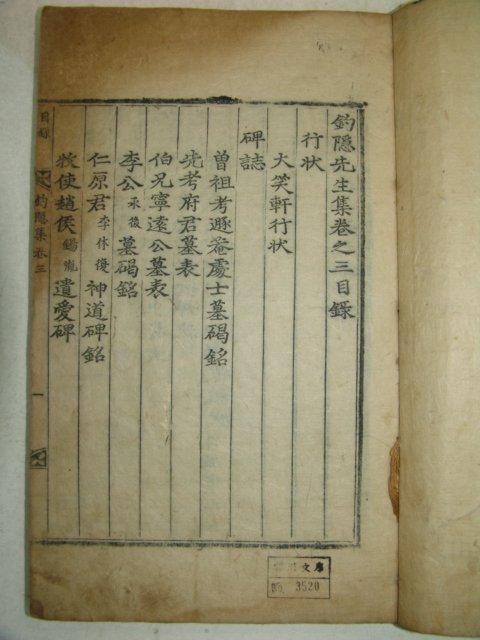 釣隱先生集卷之三目錄
行状
大笑軒行状
碑誌
曽祖考遯菴處士墓碣銘
先考府君墓表
伯兄寧遠公墓表
李公承後墓碣銘
仁原君李休復神道碑銘
牧使趙侯錫胤遺愛碑
目錄
釣隱集卷三
一
文庫
3520